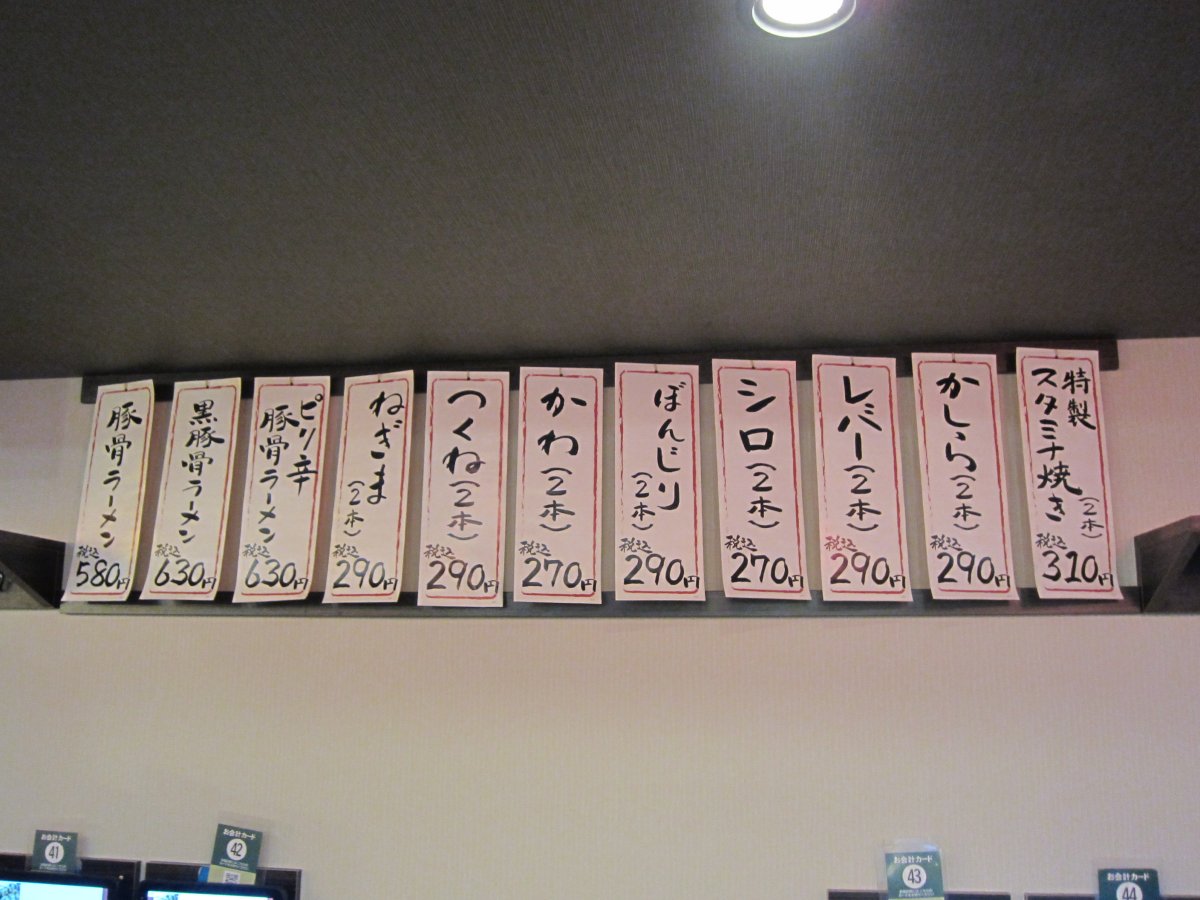 特製
スタミナ焼き
(2本)
税込
310円
かしら(2本)
税込
290円
レバー(2本)
税込
290円
シロ(2本)
税込
270円
ぼんじり
(2本)
税込
290円
かわ(2本)
税込
270円
つくね(2本)
税込
290円
ねぎま
(2本)
税込
290円
ピリ辛
豚骨ラーメン
税込
630円
黒豚骨ラーメン
税込
630円
豚骨ラーメン
税込
580円
お会計カード
41
お会計カード
42
お会計カード
43
お会計カード
44